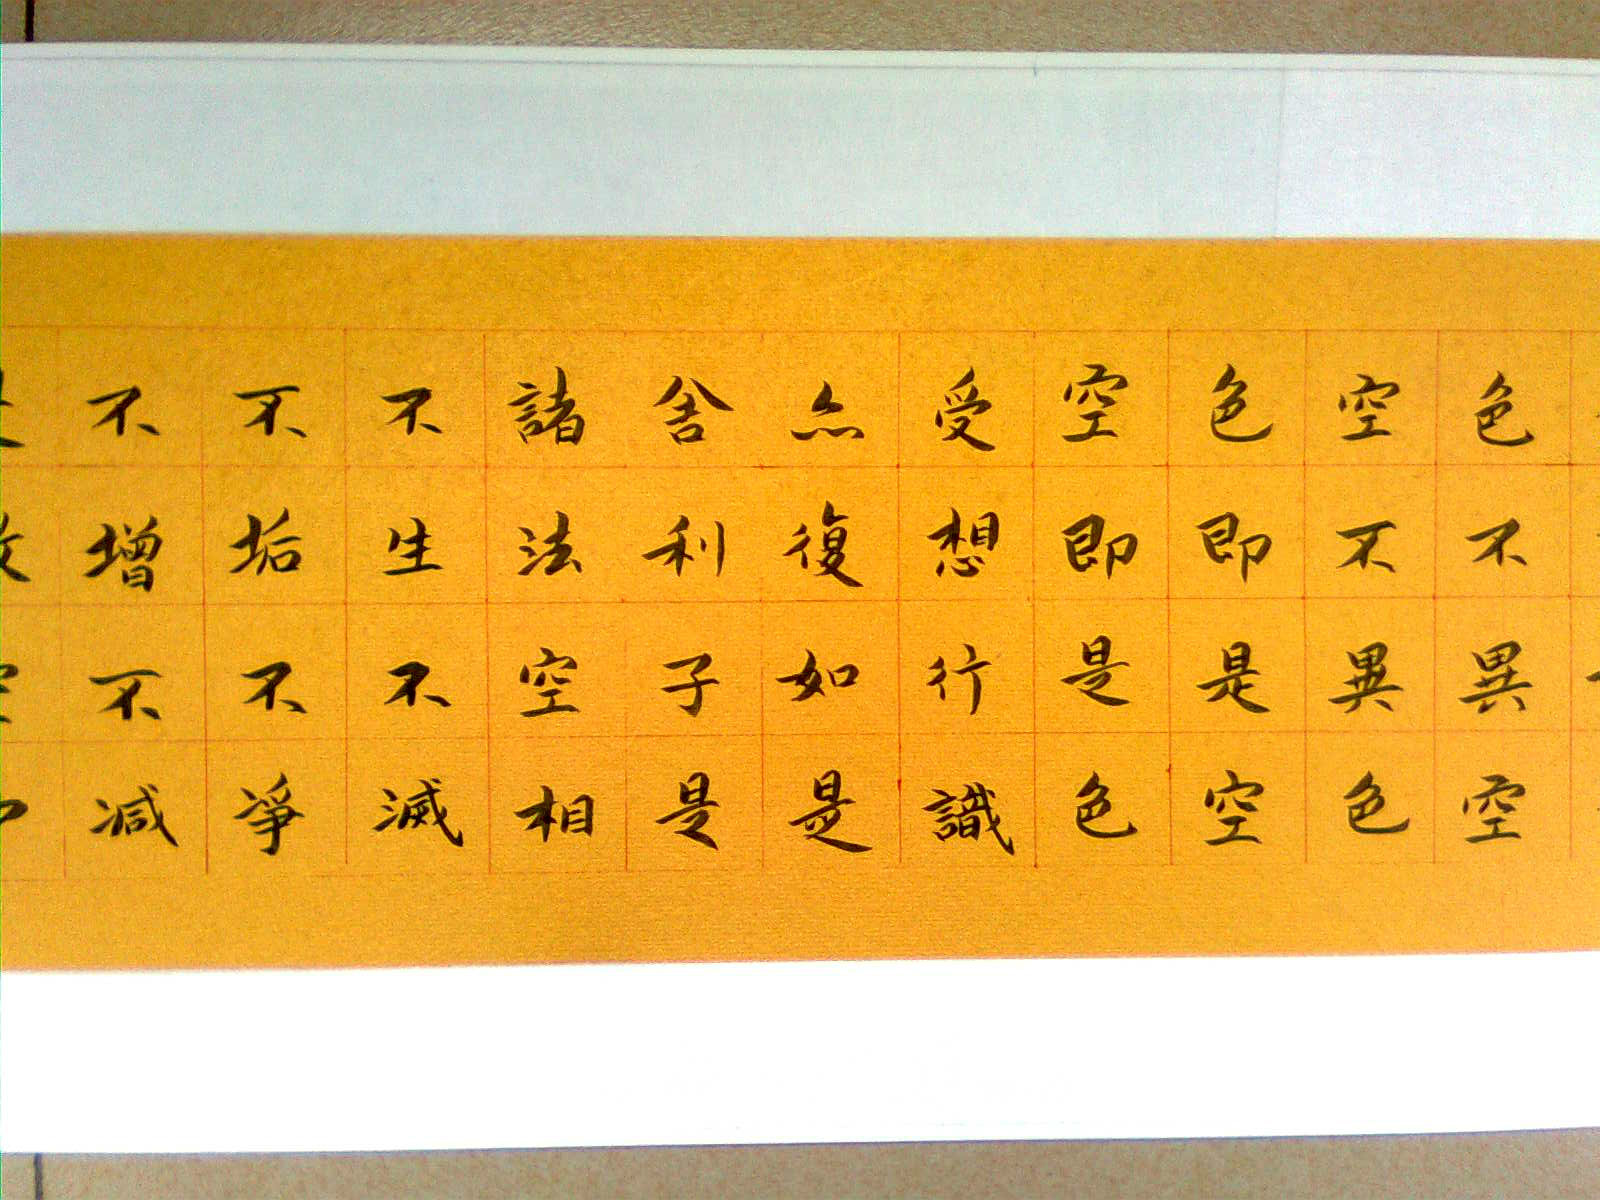 色不異空
空不異色
色即是空
空即是色
受想行識
亦復如是
舍利子是
諸法空相
不生不滅
不垢不淨
不增不减